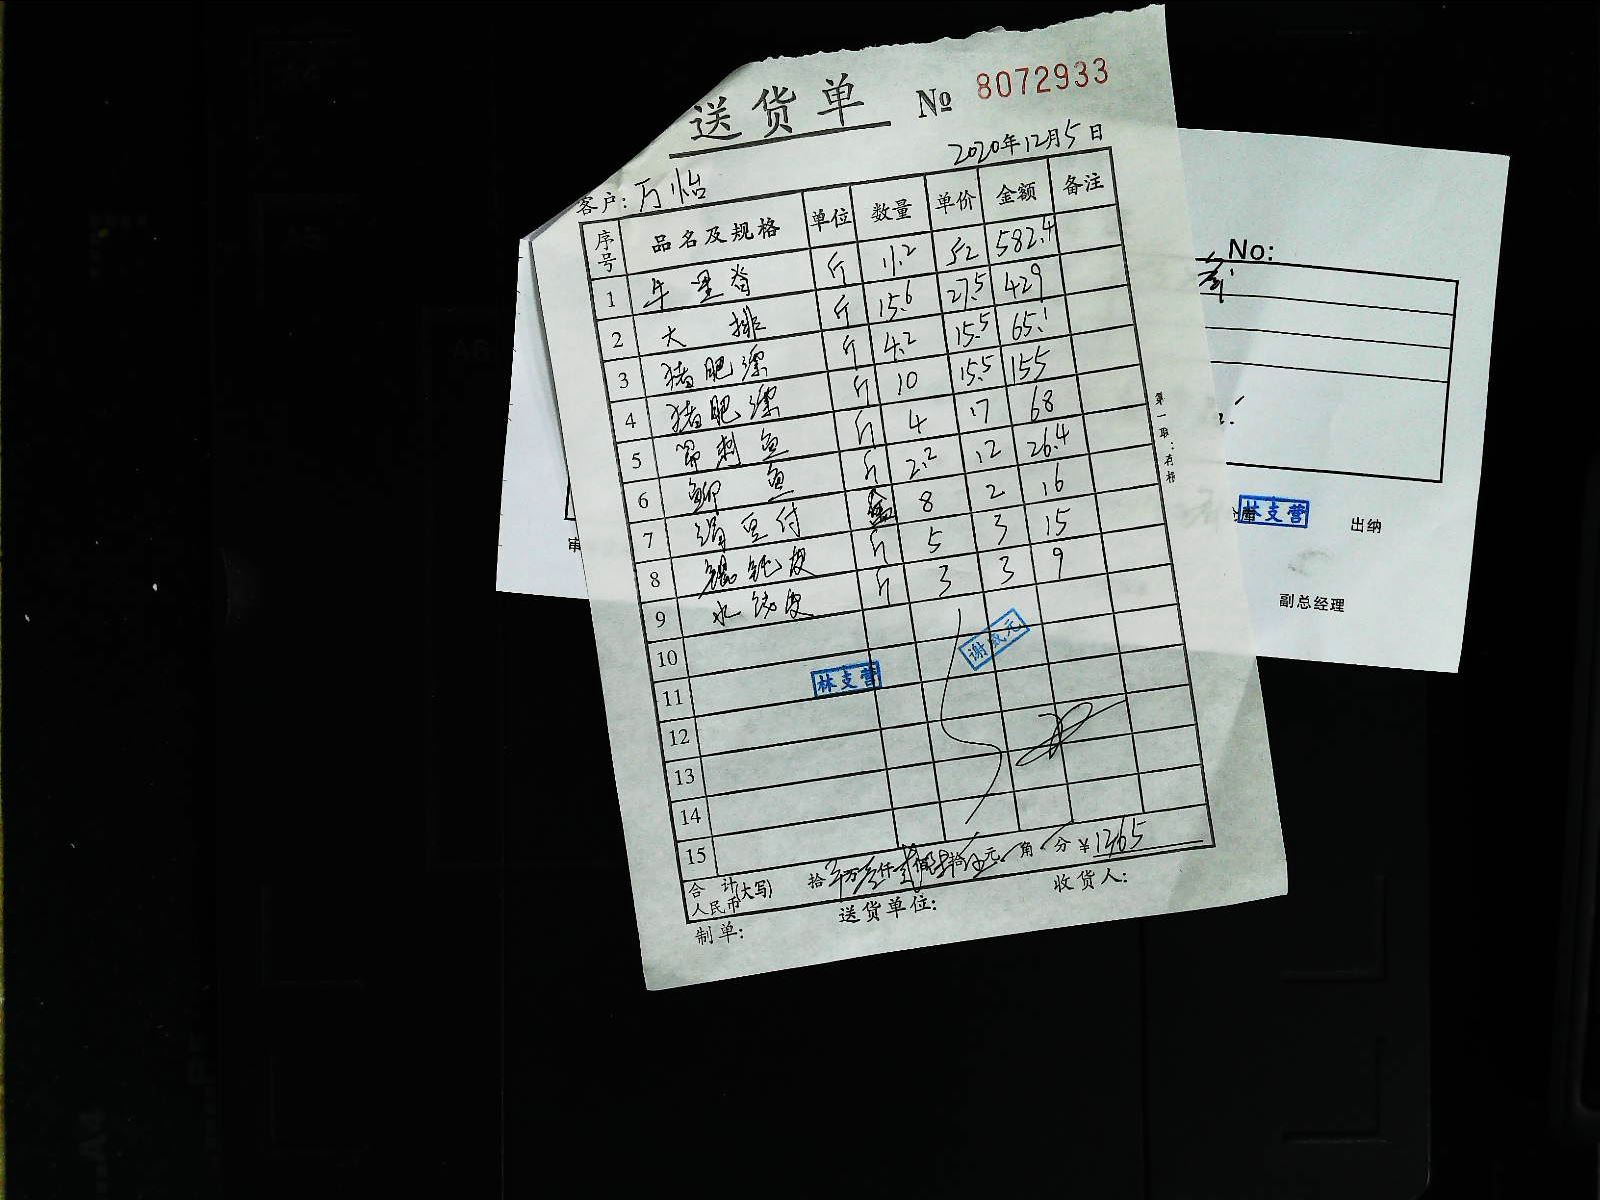 送货单 № 8072933
2020年12月5日
客户: 万怡
序号 品名及规格 单位 数量 单价 金额 备注
1 牛里脊 斤 11.2 52 582.4
2 大排 斤 15.6 27.5 429
3 猪肥漂 斤 4.2 15.5 65.1
4 猪肥漂 斤 10 15.5 155
5 刺鱼 斤 4 17 68
6 鲫鱼 斤 2.2 12 26.4
7 豆付 8 2 16
8 馄饨皮 斤 5 3 15
9 水饺皮 斤 3 3 9
10
谢成元
11
林支营
12
13
14
15
合计人民币(大写) 拾 万 仟 佰 拾 元 角 分 ¥1365
制单: 送货单位: 收货人:
第一联:存根
No:
林支营 出纳
副总经理
审